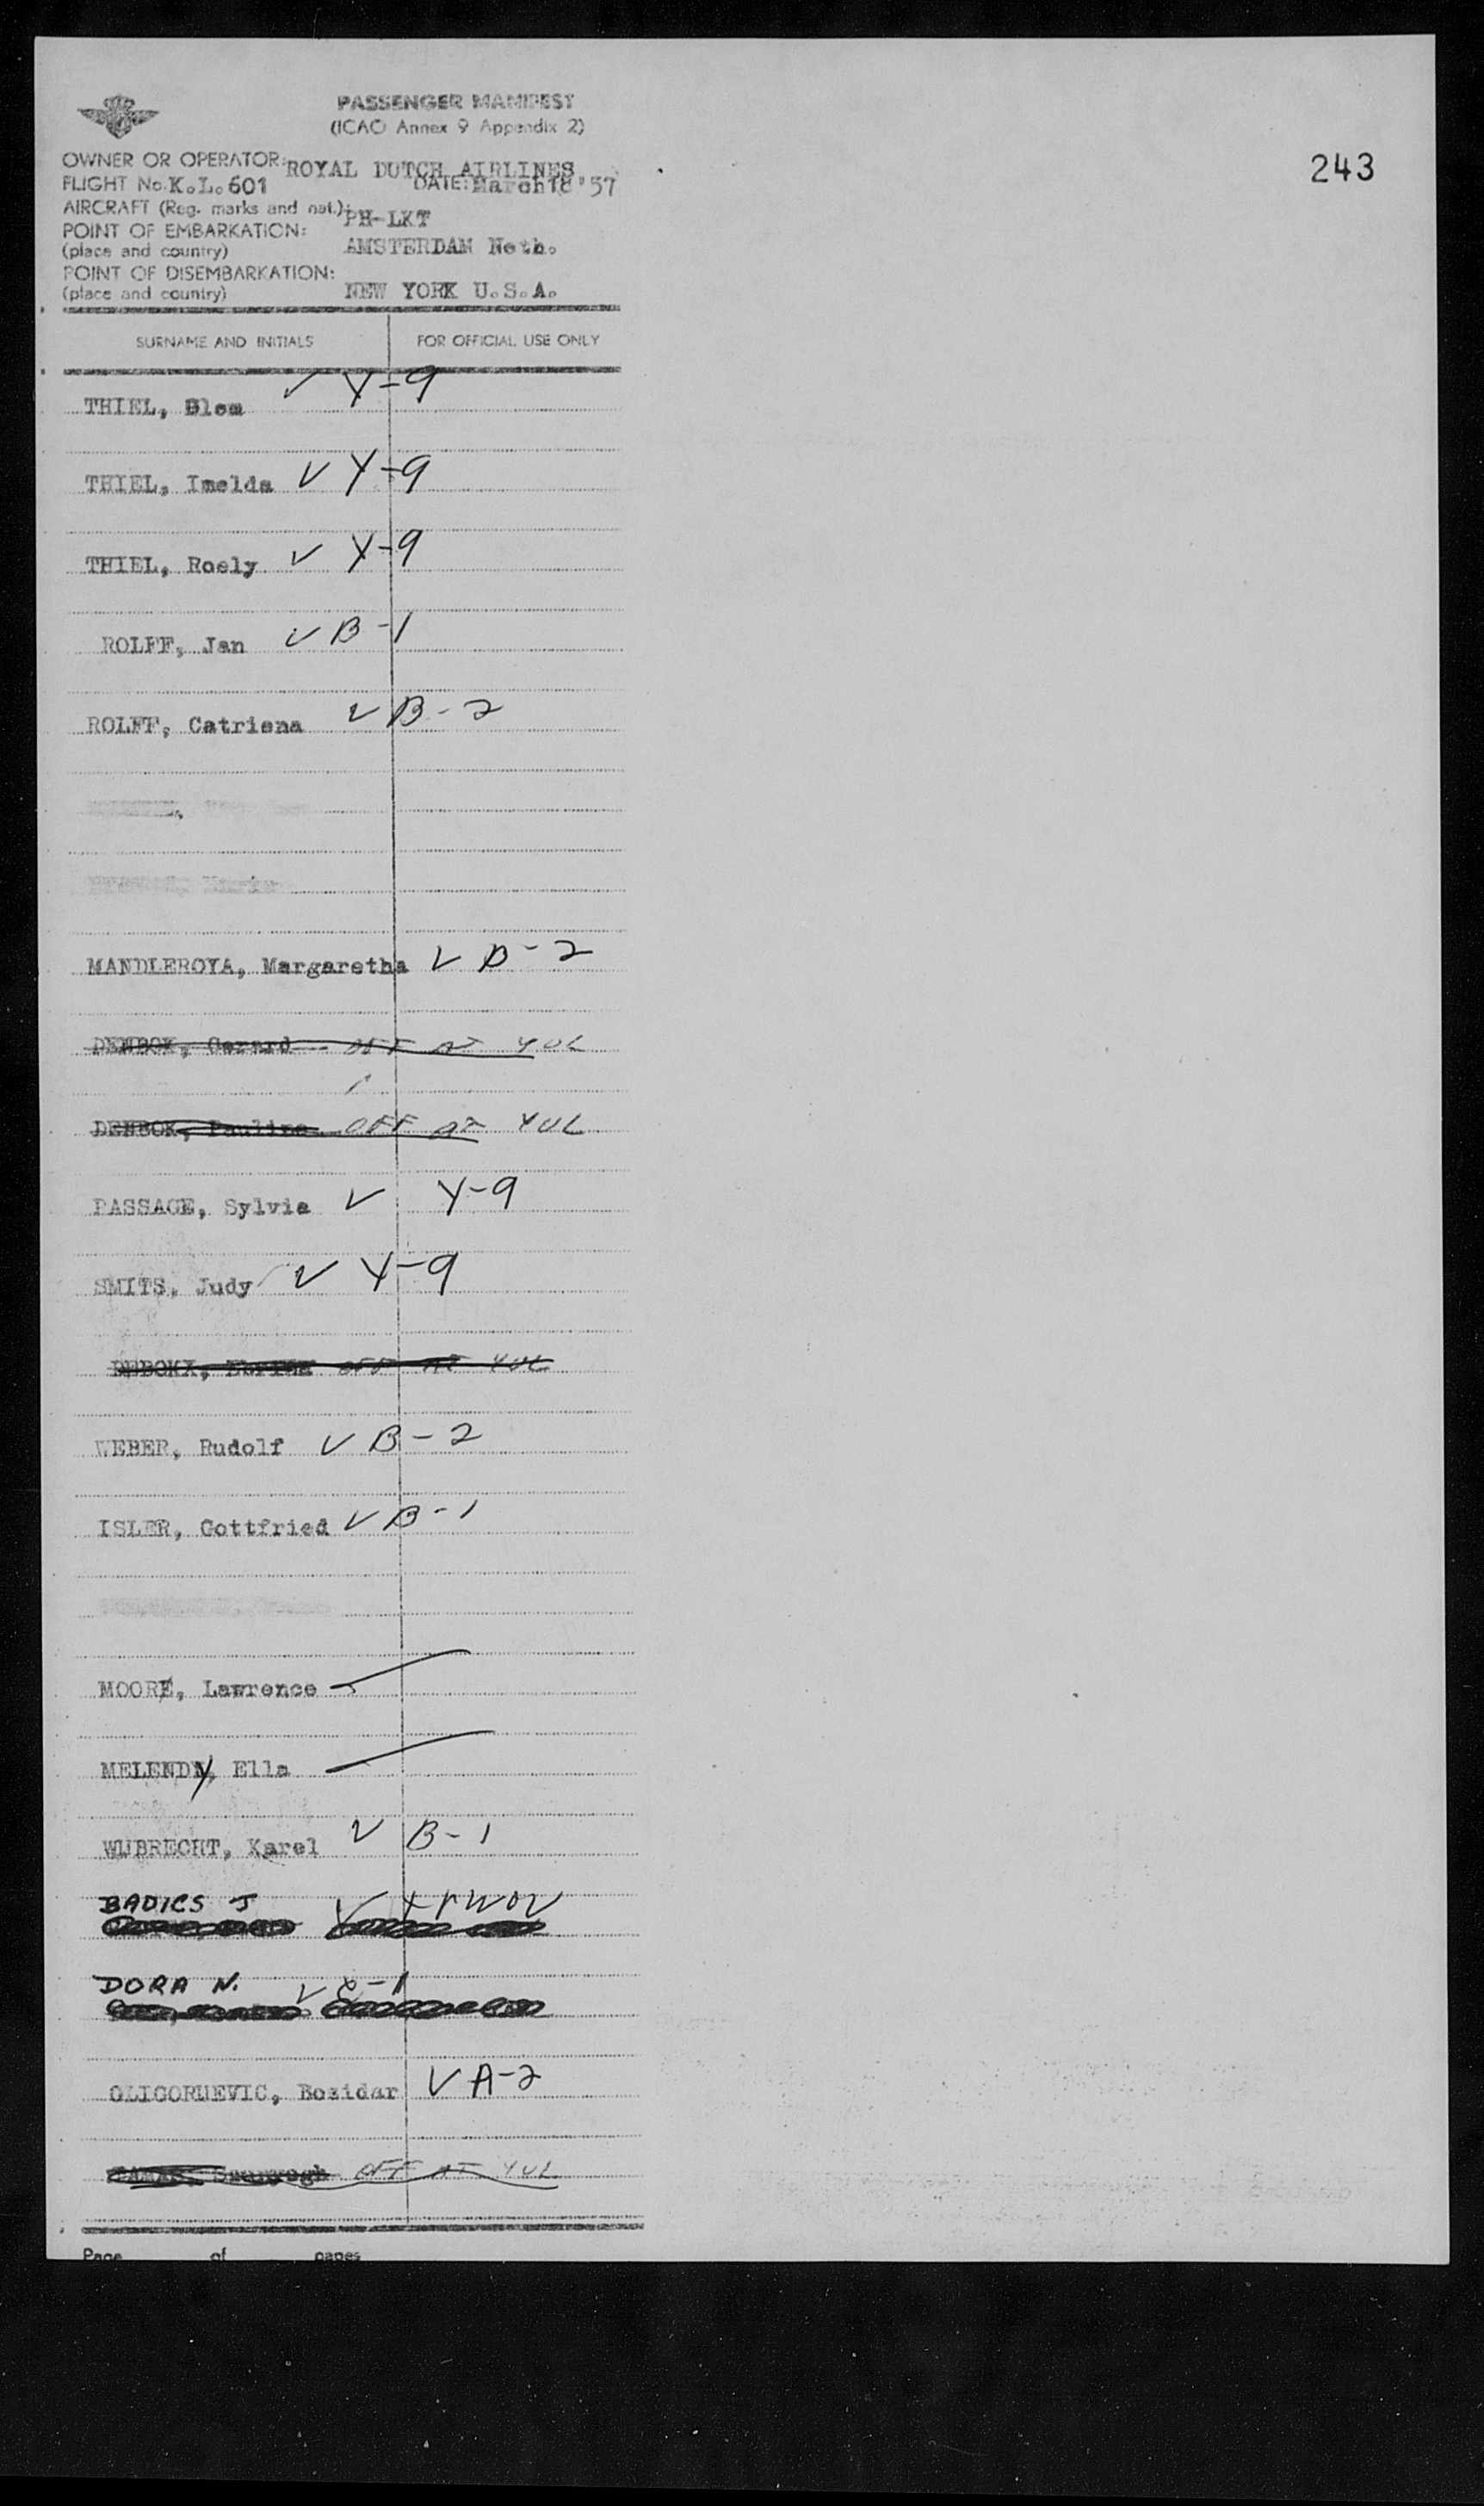 PASSENGER MANIFEST
(ICAO Annex 9 Appendix 2)
243
OWNER OR OPERATOR: ROYAL DUTCH AIRLINES
FLIGHT No. K.L. 601 DATE: March 18 '57
AIRCRAFT (Reg. marks and nat.): PH-LKT
POINT OF EMBARKATION:
(place and country) AMSTERDAM Neth.
POINT OF DISEMBARKATION:
(place and country) NEW YORK U.S.A.
SURNAME AND INITIALS FOR OFFICIAL USE ONLY
THIEL, ✓ Y-9
THIEL, Imelda ✓ Y-9
THIEL, Roely ✓ Y-9
ROLFF, Jan ✓ B-1
ROLFF, Catriena ✓ B-2
MANDLEROYA, Margaretha ✓ B-2
DEMBOK, Gerard OFF AT YUL
DEMBOK, Pauline OFF AT YUL
PASSAGE, Sylvia ✓ Y-9
SMITS, Judy ✓ Y-9
OFF AT YUL
WEBER, Rudolf ✓ B-2
ISLER, Gottfried ✓ B-1
MOORE, Lawrence
MELENDY, Ella
WIJBRECHT, Karel ✓ B-1
BADICS J ✓
DORA N. ✓
GLIGORIJEVIC, Bozidar ✓ A-2
OFF AT YUL
Page of pages